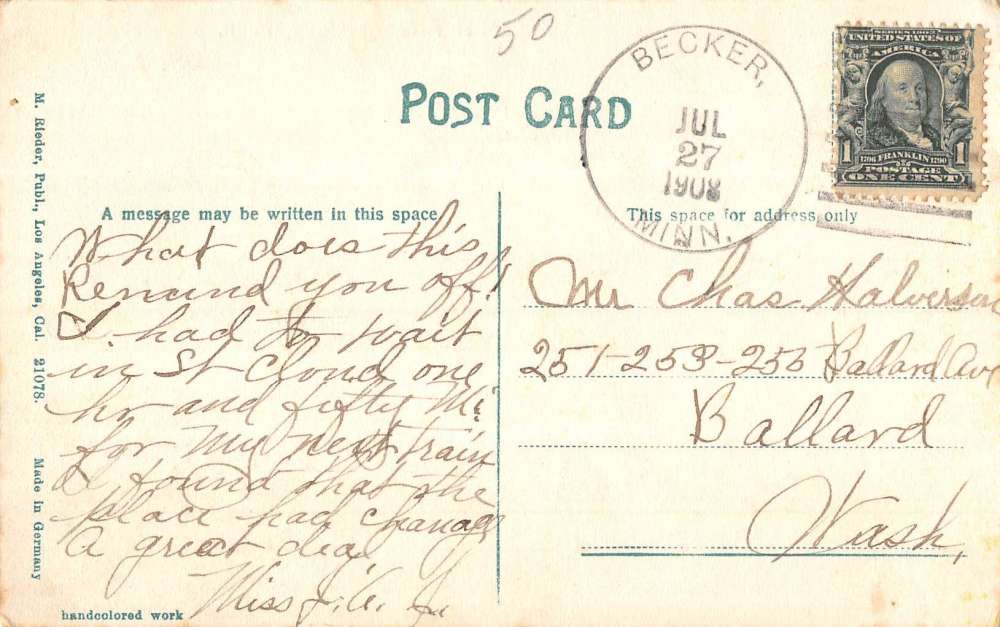 50
POST CARD
BECKER,
JUL
27
1908
MINN.
SERIES 1902
UNITED STATES OF
AMERICA
1 1706 FRANKLIN 1790 1
POSTAGE
ONE CENT
M. Rieder, Publ., Los Angeles, Cal. 21078. Made in Germany
A message may be written in this space
What does this
Remind you off!
I had to wait
in St Cloud one
hr and fifty Mi.
for my next train
I found that the
place had
a great deal
Miss
handcolored work
This space for address only
Mr Chas Halverson
251-253-255 Ballard Ave
Ballard
Wash,